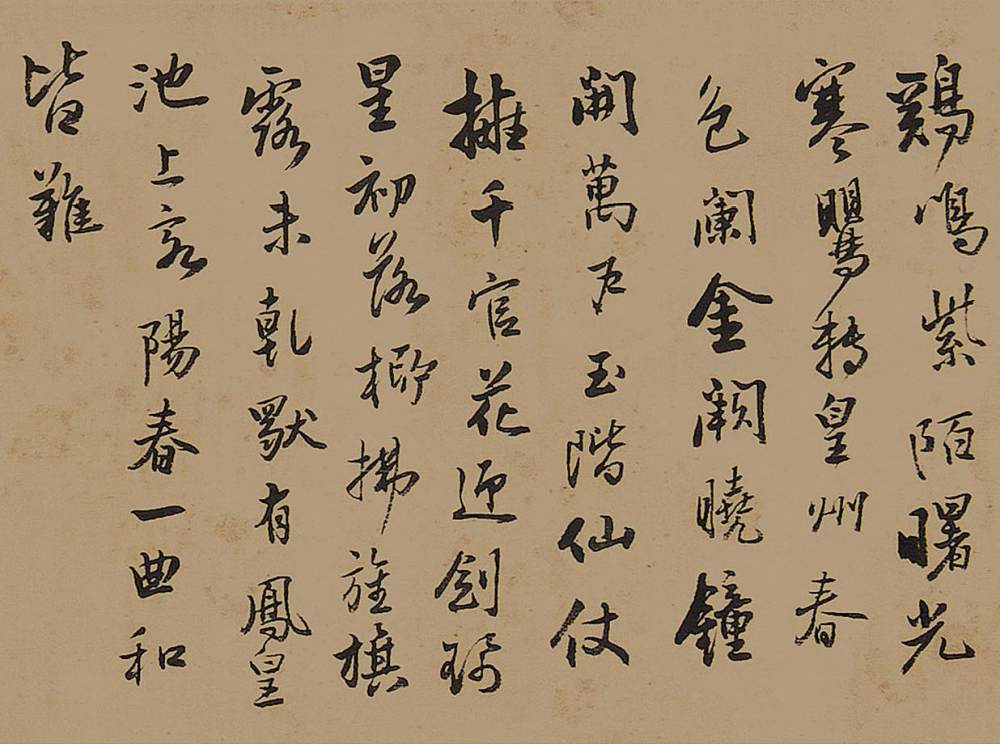 鷄鳴紫陌曙光
寒鸎轉皇州春
色闌金闕曉鐘
開萬戶玉階仙仗
擁千官花迎劍珮
星初落柳拂旌旗
露未乾獨有鳳皇
池上客陽春一曲和
皆難